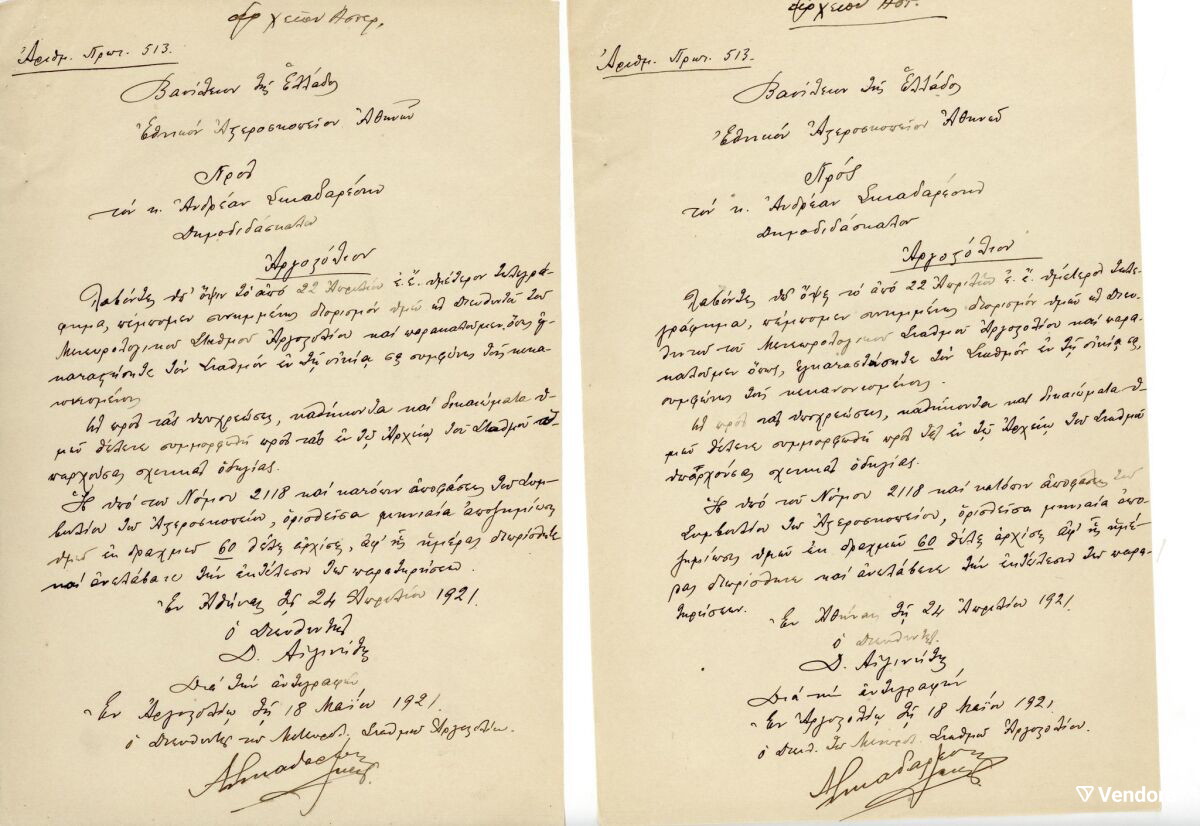 Ἀρχεῖον Ἀστερ.
Ἀριθμ. Πρωτ. 513.
Βασίλειον τῆς Ἑλλάδος
Ἐθνικόν Ἀστεροσκοπεῖον Ἀθηνῶν
Πρός
τόν κ. Ἀνδρέαν Σκιαδαρέσην
Δημοδιδάσκαλον
Ἀργοστόλιον
Λαβόντες ὑπ' ὄψιν τό ἀπό 22 Ἀπριλίου ἐ.ἔ. ἡμέτερον τηλεγρά-
φημα, πέμπομεν συνημμένως διορισμόν ὑμῶν ὡς Διευθυντοῦ τοῦ
Μετεωρολογικοῦ Σταθμοῦ Ἀργοστολίου καί παρακαλοῦμεν, ὅπως ἐγ-
καταστήσητε τόν Σταθμόν ἐν τῇ οἰκίᾳ σας συμφώνως τοῖς κεκα-
νονισμένοις.
Ὡς πρός τάς ὑποχρεώσεις, καθήκοντα καί δικαιώματα ὑ-
μῶν θέλετε συμμορφωθῆ πρός τάς ἐν τῷ Ἀρχείῳ τοῦ Σταθμοῦ ὑ-
παρχούσας σχετικάς ὁδηγίας.
Ἡ ὑπό τοῦ Νόμου 2118 καί κατόπιν ἀποφάσεως τοῦ Συμ-
βουλίου τοῦ Ἀστεροσκοπείου, ὁρισθεῖσα μηνιαία ἀποζημίωσις
ὑμῶν ἐκ δραχμῶν 60 θέλει ἀρχίσει, ἀφ' ἧς ἡμέρας διωρίσθητε
καί ἀνελάβατε τήν ἐκτέλεσιν τῶν παρατηρήσεων.
Ἐν Ἀθήναις τῇ 24 Ἀπριλίου 1921.
ὁ Διευθυντής
Δ. Αἰγινήτης
Διά τήν ἀντιγραφήν
Ἐν Ἀργοστολίῳ τῇ 18 Μαΐου 1921.
ὁ Διευθυντής τοῦ Μετεωρολ. Σταθμοῦ Ἀργοστολίου.
Ἀρχεῖον Ἀστ.
Ἀριθμ. Πρωτ. 513.
Βασίλειον τῆς Ἑλλάδος
Ἐθνικόν Ἀστεροσκοπεῖον Ἀθηνῶν
Πρός
τόν κ. Ἀνδρέαν Σκιαδαρέσην
Δημοδιδάσκαλον
Ἀργοστόλιον
Λαβόντες ὑπ' ὄψει τό ἀπό 22 Ἀπριλίου ἐ. ἔ. ἡμέτερον τηλε-
γράφημα, πέμπομεν συνημμένως διορισμόν ὑμῶν ὡς Διευ-
θυντοῦ τοῦ Μετεωρολογικοῦ Σταθμοῦ Ἀργοστολίου καί παρα-
καλοῦμεν ὅπως, ἐγκαταστήσητε τόν Σταθμόν ἐν τῇ οἰκίᾳ σας,
συμφώνως τοῖς κεκανονισμένοις.
Ὡς πρός τάς ὑποχρεώσεις, καθήκοντα καί δικαιώματα ὑ-
μῶν θέλετε συμμορφωθῆ πρός τάς ἐν τῷ Ἀρχείῳ τοῦ Σταθμοῦ
ὑπαρχούσας σχετικάς ὁδηγίας.
Ἡ ὑπό τοῦ Νόμου 2118 καί κατόπιν ἀποφάσεως τοῦ
Συμβουλίου τοῦ Ἀστεροσκοπείου, ὁρισθεῖσα μηνιαία ἀπο-
ζημίωσις ὑμῶν ἐκ δραχμῶν 60 θέλει ἀρχίσει ἀφ' ἧς ἡμέ-
ρας διωρίσθητε καί ἀνελάβετε τήν ἐκτέλεσιν τῶν παρα-
τηρήσεων.
Ἐν Ἀθήναις τῇ 24 Ἀπριλίου 1921.
ὁ Διευθυντής.
Δ. Αἰγινήτης
Διά τήν ἀντιγραφήν
Ἐν Ἀργοστολίῳ τῇ 18 Μαΐου 1921.
ὁ Διευθ. τοῦ Μετεωρ. Σταθμοῦ Ἀργοστολίου.
Vendor